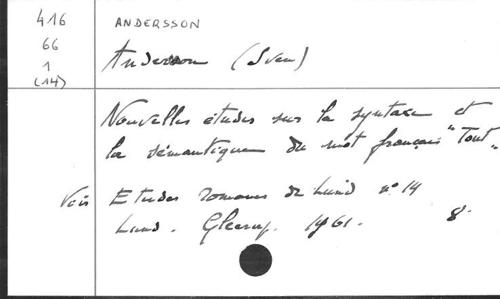 416
66
1
(14)
ANDERSSON
Andersson (Sven)
Nouvelles études sur la syntaxe et
la sémantique du mot français "Tout"
Voir Etudes romanes de Lund n° 14
Lund. Gleerup. 1961. 8°